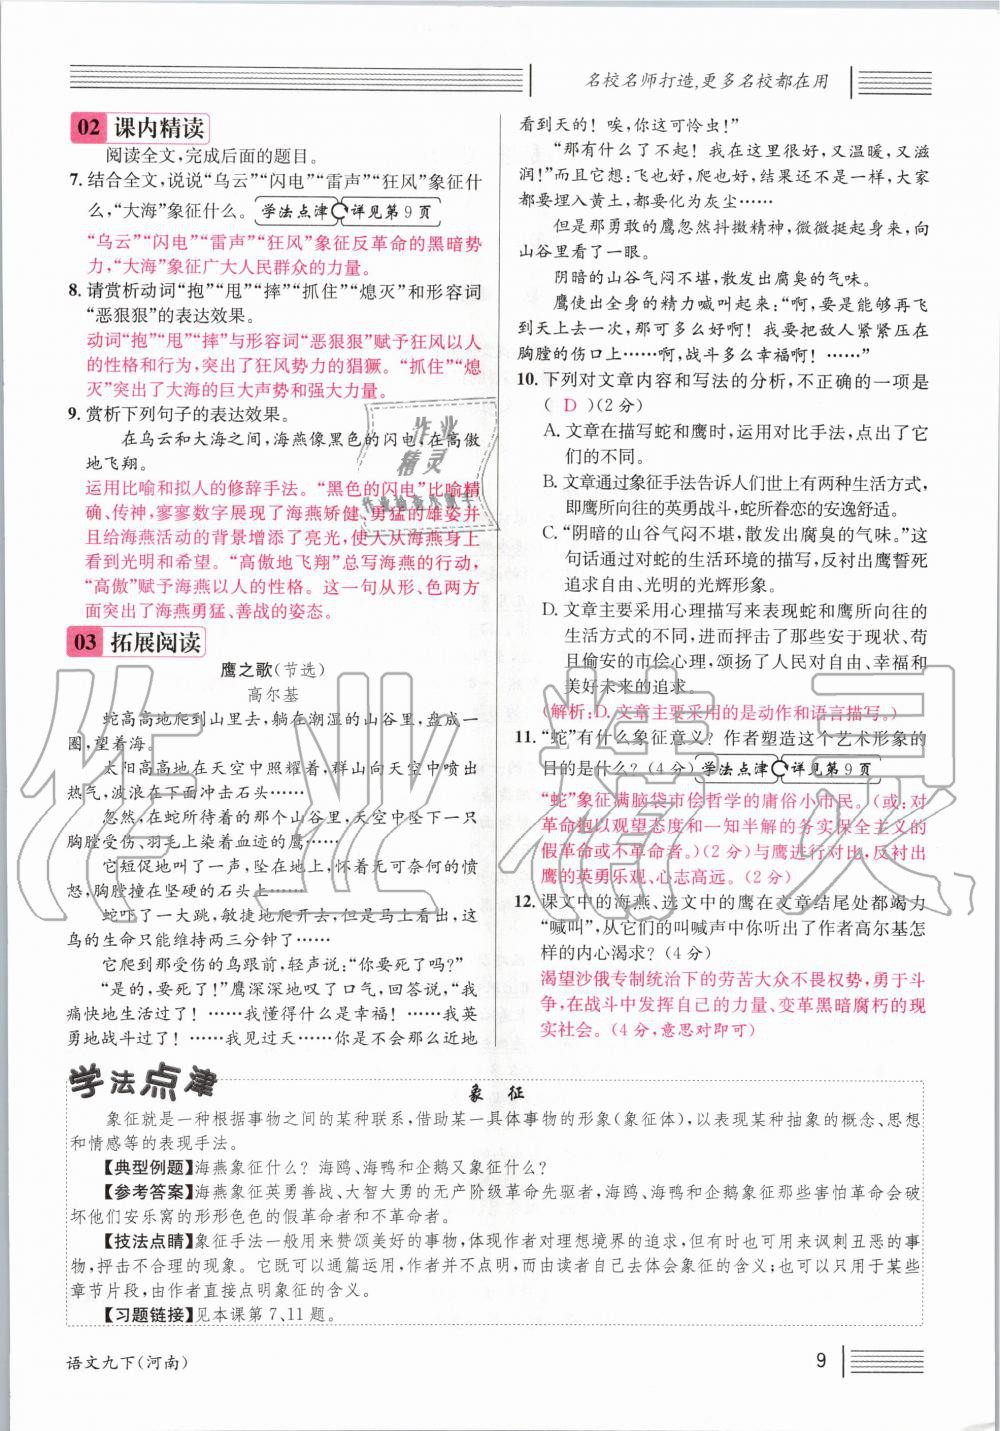 名校名师打造,更多名校都在用
02 课内精读
阅读全文,完成后面的题目。
7. 结合全文,说说“乌云”“闪电”“雷声”“狂风”象征什
么,“大海”象征什么。学法点津 详见第9页
“乌云”“闪电”“雷声”“狂风”象征反革命的黑暗势
力,“大海”象征广大人民群众的力量。
8. 请赏析动词“抱”“甩”“摔”“抓住”“熄灭”和形容词
“恶狠狠”的表达效果。
动词“抱”“甩”“摔”与形容词“恶狠狠”赋予狂风以人
的性格和行为,突出了狂风势力的猖獗。“抓住”“熄
灭”突出了大海的巨大声势和强大力量。
9. 赏析下列句子的表达效果。
在乌云和大海之间,海燕像黑色的闪电,在高傲
地飞翔。
运用比喻和拟人的修辞手法。“黑色的闪电”比喻精
确、传神,寥寥数字展现了海燕矫健、勇猛的雄姿并
且给海燕活动的背景增添了亮光,使人从海燕身上
看到光明和希望。“高傲地飞翔”总写海燕的行动,
“高傲”赋予海燕以人的性格。这一句从形、色两方
面突出了海燕勇猛、善战的姿态。
03 拓展阅读
鹰之歌(节选)
高尔基
蛇高高地爬到山里去,躺在潮湿的山谷里,盘成一
圈,望着海。
太阳高高地在天空中照耀着,群山向天空中喷出
热气,波浪在下面冲击着石头……
忽然,在蛇所待着的那个山谷里,天空中坠下一只
胸膛受伤、羽毛上染着血迹的鹰……
它短促地叫了一声,坠在地上,怀着无可奈何的愤
怒,胸膛撞在坚硬的石头上……
蛇吓了一大跳,敏捷地爬开去,但是马上看出,这
鸟的生命只能维持两三分钟了……
它爬到那受伤的鸟跟前,轻声说:“你要死了吗?”
“是的,要死了!”鹰深深地叹了口气,回答说,“我
痛快地生活过了!……我懂得什么是幸福!……我英
勇地战斗过了!……我见过天……你是不会那么近地
看到天的!唉,你这可怜虫!”
“那有什么了不起!我在这里很好,又温暖,又滋
润!”而且它想:飞也好,爬也好,结果还不是一样,大家
都要埋入黄土,都要化为灰尘……
但是那勇敢的鹰忽然抖擞精神,微微挺起身来,向
山谷里看了一眼。
阴暗的山谷气闷不堪,散发出腐臭的气味。
鹰使出全身的精力喊叫起来:“啊,要是能够再飞
到天上去一次,那可多么好啊!我要把敌人紧紧压在
胸膛的伤口上……啊,战斗多么幸福啊!……”
10. 下列对文章内容和写法的分析,不正确的一项是
( D )(2分)
A. 文章在描写蛇和鹰时,运用对比手法,突出了它
们的不同。
B. 文章通过象征手法告诉人们世上有两种生活方式,
即鹰所向往的英勇战斗,蛇所眷恋的安逸舒适。
C. “阴暗的山谷气闷不堪,散发出腐臭的气味。”这
句话通过对蛇的生活环境的描写,反衬出鹰誓死
追求自由、光明的光辉形象。
D. 文章主要采用心理描写来表现蛇和鹰所向往的
生活方式的不同,进而抨击了一种安于现状、苟
且偷安的市侩心理,颂扬了人民对自由、幸福和
美好未来的追求。
(解析:D. 文章主要采用的是动作和语言描写。)
11. “蛇”有什么象征意义?作者塑造这个艺术形象的
目的是什么?(4分)学法点津 详见第9页
“蛇”象征满脑袋市侩哲学的庸俗小市民。(或:对
革命抱以观望态度和一知半解的务实保全主义的
假革命或不革命者。)(2分)与鹰进行对比,反衬出
鹰的英勇乐观、心志高远。(2分)
12. 课文中的海燕、选文中的鹰在文章结尾处都竭力
“喊叫”,从它们的叫喊声中你听出了作者高尔基怎
样的内心渴求?(4分)
渴望沙俄专制统治下的劳苦大众不畏权势,勇于斗
争,在战斗中发挥自己的力量、变革黑暗腐朽的现
实社会。(4分,意思对即可)
学法点津
象 征
象征就是一种根据事物之间的某种联系,借助某一具体事物的形象(象征体),以表现某种抽象的概念、思想
和情感等的表现手法。
【典型例题】海燕象征什么?海鸥、海鸭和企鹅又象征什么?
【参考答案】海燕象征英勇善战、大智大勇的无产阶级革命先驱者,海鸥、海鸭和企鹅象征那些害怕革命会破
坏他们安乐窝的形形色色的假革命者和不革命者。
【技法点睛】象征手法一般用来赞颂美好的事物,体现作者对理想境界的追求,但有时也用来讽刺丑恶的事
物,抨击不合理的现象。它既可以通篇运用,作者并不点明,而由读者自己去体会象征的含义;也可以只用于某些
章节片段,由作者直接点明象征的含义。
【习题链接】见本课第7、11题。
语文九下(河南)
9
作业精灵
作业精灵